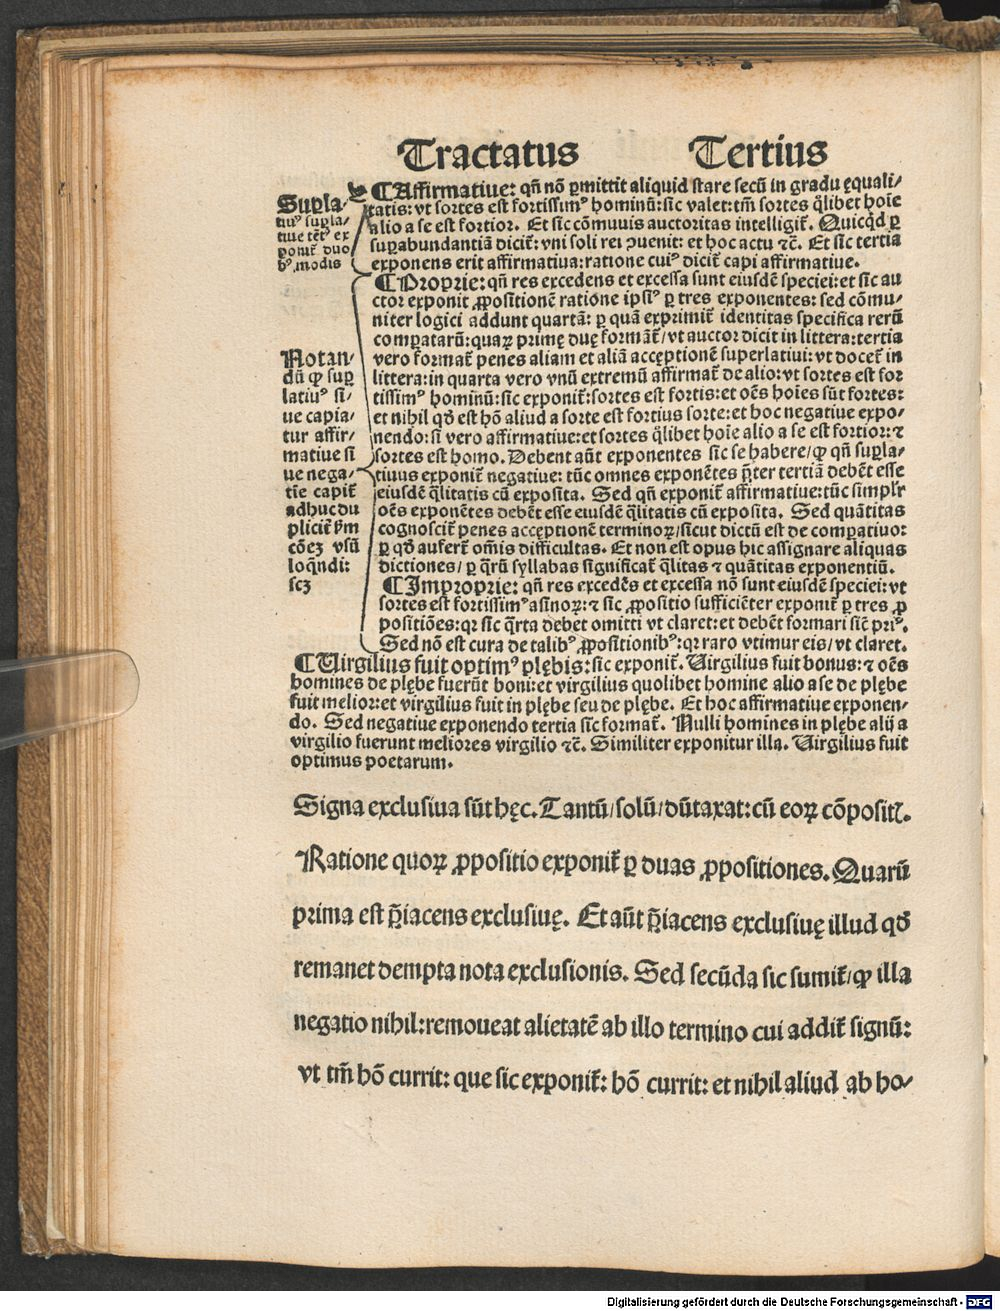 Tractatus Tertius
Supla-
tiuꝰ supla-
tiue tēt᷒ ex
ponit᷒ duo
bꝰ modis
Notan-
dū ꝙ suꝑ
latiuꝰ si-
ue capia-
tur affir-
matiue si
ue nega-
tīe capit᷒
adhuc du
plicit᷒ ẜm
cōeꝫ vsū
loqn̄di:
scꝫ
¶Affirmatiue: qn̄ nō ꝑmittit aliquid stare secū in gradu ęquali-
tatis: vt sortes est fortissimꝰ hominū: sic valet: tm̄ sortes q̄libet hoīe
alio a se est fortior. Et sic cōmuuis auctoritas intelligit᷒. Quicq̄d ꝑ
suꝑabundantiā dicit᷒: vni soli rei ꝯuenit: et hoc actu ⁊c̄. Et sic tertia
exponens erit affirmatiua: ratione cuiꝰ dicit᷒ capi affirmatiue.
¶Proprie: qn̄ res excedens et excessa sunt eiusdē speciei: et sic au
ctor exponit ꝓpositionē ratione ipsiꝰ ꝑ tres exponentes: sed cōmu-
niter logici addunt quartā: ꝑ quā exprimit᷒ identitas specifica rerū
comꝑatarū: quaꝝ primę duę formāt᷒/ vt auctor dicit in littera: tertia
vero format᷒ penes aliam et aliā acceptionē superlatiui: vt docet᷒ in
littera: in quarta vero vnū extremū affirmat᷒ de alio: vt sortes est for
tissimꝰ hominū: sic exponit᷒: sortes est fortis: et oēs hoīes sūt fortes:
et nihil qd̄ est hō aliud a sorte est fortius sorte: et hoc negatiue expo-
nendo: si vero affirmatiue: et sortes q̄libet hoīe alio a se est fortior: ⁊
sortes est homo. Debent aūt exponentes sic se habere/ ꝙ qn̄ suꝑla-
tiuus exponit᷒ negatiue: tūc omnes exponētes p̄ter tertiā debēt esse
eiusdē q̄litatis cū exposita. Sed qn̄ exponit᷒ affirmatiue: tūc simplr̄
oēs exponētes debēt esse eiusdē q̄litatis cū exposita. Sed quātitas
cognoscit᷒ penes acceptionē terminoꝝ/ sicut dictū est de comꝑatiuo:
ꝑ qd̄ aufert᷒ om̄is difficultas. Et non est opus hic assignare aliquas
dictiones/ ꝑ q̄rū syllabas significat᷒ q̄litas ⁊ quātitas exponentiū.
¶Improprie: qn̄ res excedēs et excessa nō sunt eiusdē speciei: vt
sortes est fortissimꝰ asinoꝝ: ⁊ sic ꝓpositio sufficiēter exponit᷒ ꝑ tres ꝓ
positiōes: qꝛ sic q̄rta debet omitti vt claret: et debēt formari sic̄ priꝰ.
Sed nō est cura de talibꝰ ꝓpositionibꝰ: qꝛ raro vtimur eis/ vt claret.
¶Uirgilius fuit optimꝰ plębis: sic exponit᷒. Uirgilius fuit bonus: ⁊ oēs
homines de plębe fuerūt boni: et virgilius quolibet homine alio a se de plębe
fuit melior: et virgilius fuit in plębe seu de plębe. Et hoc affirmatiue exponen-
do. Sed negatiue exponendo tertia sic format᷒. Nulli homines in plębe alij a
virgilio fuerunt meliores virgilio ⁊c̄. Similiter exponitur illa. Uirgilius fuit
optimus poetarum.
Signa exclusiua sūt hęc. Tantū/ solū/ dūtaxat: cū eoꝝ cōpositꝭ.
Ratione quoꝝ ꝓpositio exponit᷒ ꝑ duas ꝓpositiones. Quarū
prima est p̄iacens exclusiuę. Et aūt p̄iacens exclusiuę illud qd̄
remanet dempta nota exclusionis. Sed secūda sic sumit᷒/ ꝙ illa
negatio nihil: remoueat alietatē ab illo termino cui addit᷒ signū:
vt tm̄ hō currit: que sic exponit᷒: hō currit: et nihil aliud ab ho-
Digitalisierung gefördert durch die Deutsche Forschungsgemeinschaft - DFG